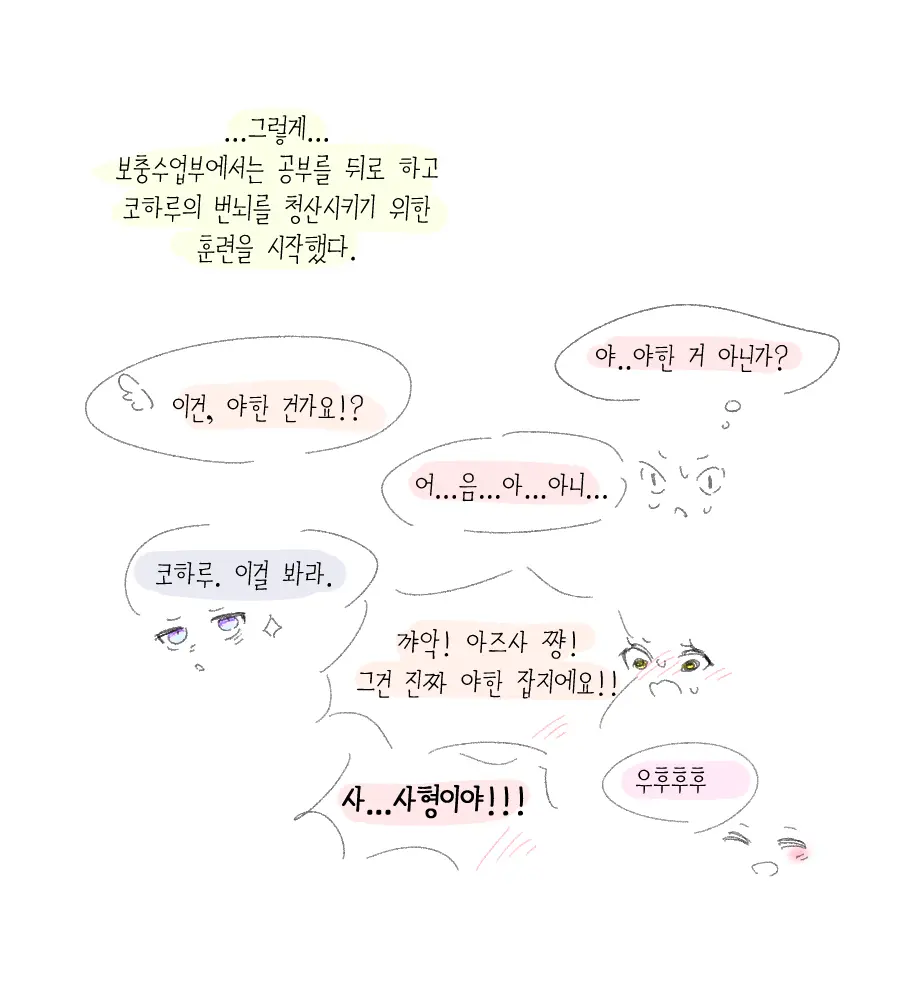 ...그렇게...
보충수업부에서는 공부를 뒤로 하고
코하루의 번뇌를 청산시키기 위한
훈련을 시작했다.
야..야한 거 아닌가?
이건, 야한 건가요!?
어...음...아...아니...
코하루. 이걸 봐라.
꺄악! 아즈사 쨩!
그건 진짜 야한 잡지에요!!
사...사형이야!!!
우후후후